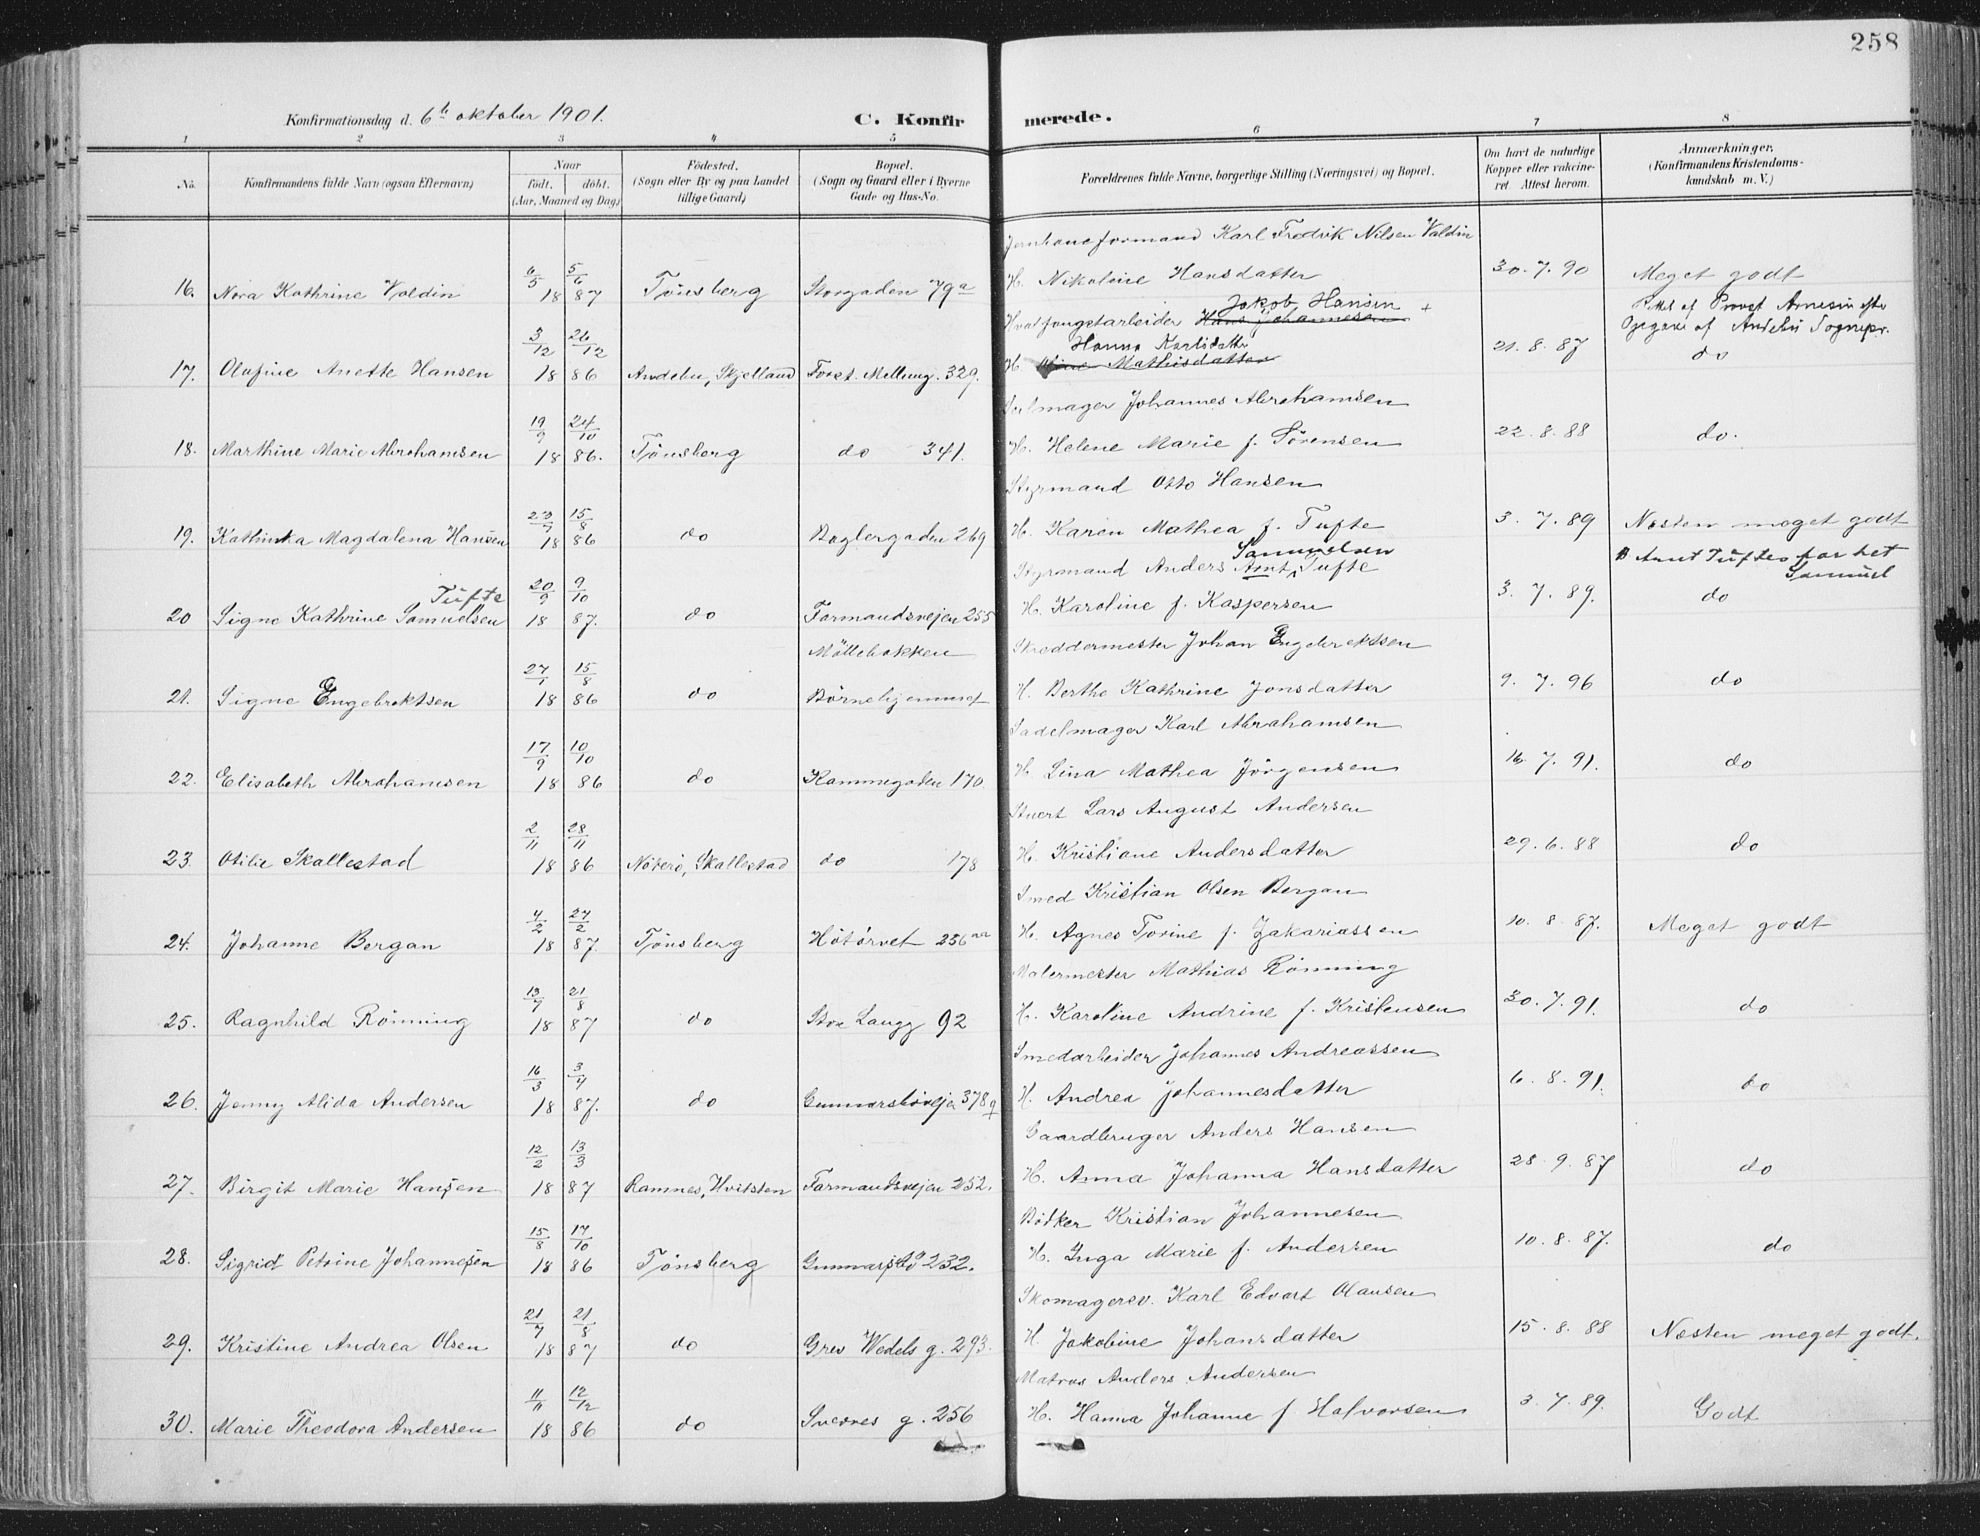 258
Konfirmationsdag d. 6te oktober 1901.
C. Konfirmerede.
1 2 3 4 5 6 7 8
No. Konfirmandens fulde Navn (ogsaa Efternavn) Naar födt. döbt. (Aar, Maaned og Dag) Födested. (Sogn eller By og paa Landet tillige Gaard) Bopæl. (Sogn og Gaard eller i Byerne Gade og Hus-No. Forældrenes fulde Navne, borgerlige Stilling (Næringsvei) og Bopæl. Om havt de naturlige Kopper eller vakcineret. Attest herom. Anmærkninger. (Konfirmandens Kristendomskundskab m. V.)
Jernbaneformand Karl Fredrik Nilsen Valdin
16. Nora Kathrine Valdin 6/5 5/6 1887 Tönsberg Storgaden 79a H. Nikoline Hansdatter 30.7.90 Meget godt
Jakob Hansen +
Hvalfangstarbeider Hans Johannesen
Rettet af Provst Arnesen efter Opgave af Andebu Sognepr.
Hanna Karlsdatter
17. Olafine Anette Hansen 3/12 26/12 1886 Andebu, Skjelland Forst. Mellumg. 329. H. Mathisdatter 21.8.87 do
Seilmager Johannes Abrahamsen
18. Marthine Marie Abrahamsen 19/9 24/10 1886. Tönsberg do 341. H. Helene Marie f. Sörensen 22.8.88 do.
Styrmand Otto Hansen
19. Kathinka Magdalena Hansen 23/7 15/8 1886 do Baglergaden 269 H. Karen Mathea f. Tufte 3.7.89 Næsten meget godt
Samuelsen
Styrmand Anders Arnt Tufte
Arnt Tuftes far het Samuel
Tufte
20 Signe Kathrine Samuelsen 20/9 9/10 1887. do Farmandsvejen 255 H. Karoline f. Kaspersen 3.7.89. do
Möllebakken Skreddermester Johan Engebrektsen
21. Signe Engebrektsen 27/1 15/8 1886 do Börnehjemmet H. Berthe Kathrine Jonsdatter 9.7.96 do
Sadelmager Karl Abrahamsen
22. Elisabeth Abrahamsen 17/9 10/10 1886 do Kammegaden 170. H. Lina Mathea Jörgensen 16.7.91. do
Stuert Lars August Andersen
23. Otilie Skallestad 2/11 28/11 1886 Nöterö, Skallestad do 178 H. Kristiane Andersdatter 29.6.88 do
Smed Kristian Olsen Bergan
24. Johanne Bergan 4/2 27/2 1887. Tönsberg Hötorvet 256 H. Agnes Torine f. Zakariassen 10.8.87. Meget godt
Malermester Mathias Rönning
25. Ragnhild Rönning 13/7 21/8 1887 do Store Langg 92 H. Karoline Andrine f. Kristensen 30.7.91. do
Smedarbeider Johannes Andreassen
26. Jenny Alida Andersen 16/3 3/4 1887. do Gunnarsbövejen 378 H. Andrea Johannesdatter 6.8.91. do
Gaardbruger Anders Hansen
27. Birgit Marie Hansen 12/2 13/3 1887 Ramnes, Hvitsten Farmandsvejen 252. H. Anna Johanna Hansdatter 28.9.87 do
Bödker Kristian Johannesen
28. Sigrid Petrine Johannesen 15/8 17/10 1886 Tönsberg Gunnarsbö 232. H. Inga Marie f. Andersen 10.8.87. do
Skomagersv. Karl Edvart Olausen
29. Kristine Andrea Olsen 21/7 21/8 1887 do Grev Wedels g. 293. H. Jakobine Johansdatter 15.8.88 Næsten meget godt.
Matros Anders Andersen
30. Marie Theodora Andersen 11/11 12/12 1886 do Sverres g. 256 H. Hanna Johanne f. Halvorsen 3.7.89. Godt